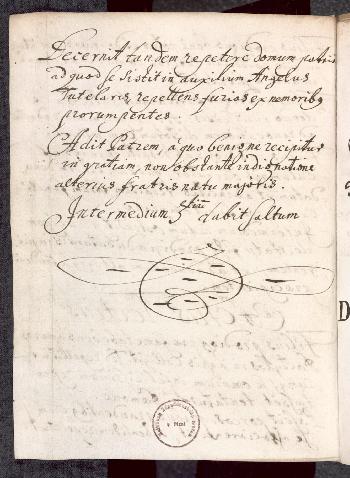 Decernit tandem repetere domum patris
ad quod se sistit in auxilium Angelus
Tutelaris, repellens furias ex nemoribq
prorumpentes.
Adit Patrem, a quo benigne recipitur
in gratiam, non obstante indignatione
alterius fratris natu majoris.
Intermedium 5tum dabit saltum
D